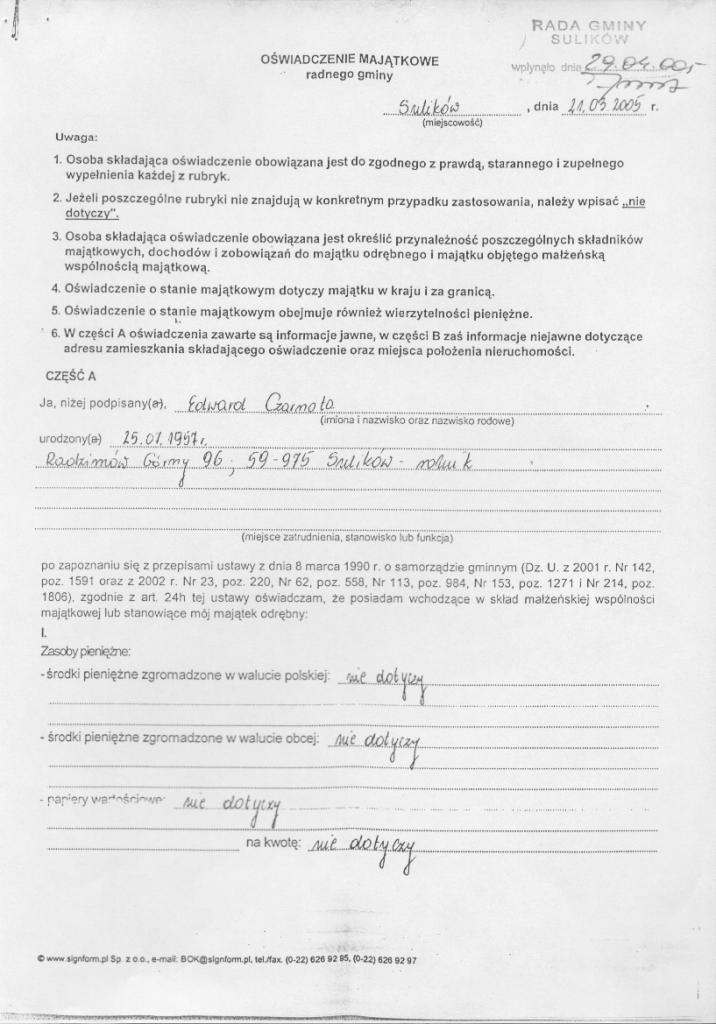 RADA GMINY
SULIKÓW
wpłynęło dnia 29.04.00,-
OŚWIADCZENIE MAJĄTKOWE
radnego gminy
Sulików, dnia 21.03.2005 r.
(miejscowość)
Uwaga:
1. Osoba składająca oświadczenie obowiązana jest do zgodnego z prawdą, starannego i zupełnego
wypełnienia każdej z rubryk.
2. Jeżeli poszczególne rubryki nie znajdują w konkretnym przypadku zastosowania, należy wpisać „nie
dotyczy".
3. Osoba składająca oświadczenie obowiązana jest określić przynależność poszczególnych składników
majątkowych, dochodów i zobowiązań do majątku odrębnego i majątku objętego małżeńską
wspólnością majątkową.
4. Oświadczenie o stanie majątkowym dotyczy majątku w kraju i za granicą.
5. Oświadczenie o stanie majątkowym obejmuje również wierzytelności pieniężne.
6. W części A oświadczenia zawarte są informacje jawne, w części B zaś informacje niejawne dotyczące
adresu zamieszkania składającego oświadczenie oraz miejsca położenia nieruchomości.
CZĘŚĆ A
Ja, niżej podpisany(a), Edward Czarnota
(imiona i nazwisko oraz nazwisko rodowe)
urodzony(a) 25.01.1957r.
Radzimów Górny 96, 59-975 Sulików - rolnik
(miejsce zatrudnienia, stanowisko lub funkcja)
po zapoznaniu się z przepisami ustawy z dnia 8 marca 1990 r. o samorządzie gminnym (Dz. U. z 2001 r. Nr 142,
poz. 1591 oraz z 2002 r. Nr 23, poz. 220, Nr 62, poz. 558, Nr 113, poz. 984, Nr 153, poz. 1271 i Nr 214, poz.
1806), zgodnie z art. 24h tej ustawy oświadczam, że posiadam wchodzące w skład małżeńskiej wspólności
majątkowej lub stanowiące mój majątek odrębny:
I.
Zasoby pieniężne:
- środki pieniężne zgromadzone w walucie polskiej: nie dotyczy
- środki pieniężne zgromadzone w walucie obcej: nie dotyczy
- papiery wartościowe: nie dotyczy
na kwotę: nie dotyczy
© www.signform.pl Sp. z o.o., e-mail: BOK@signform.pl, tel./fax. (0-22) 626 92 95, (0-22) 626 92 97